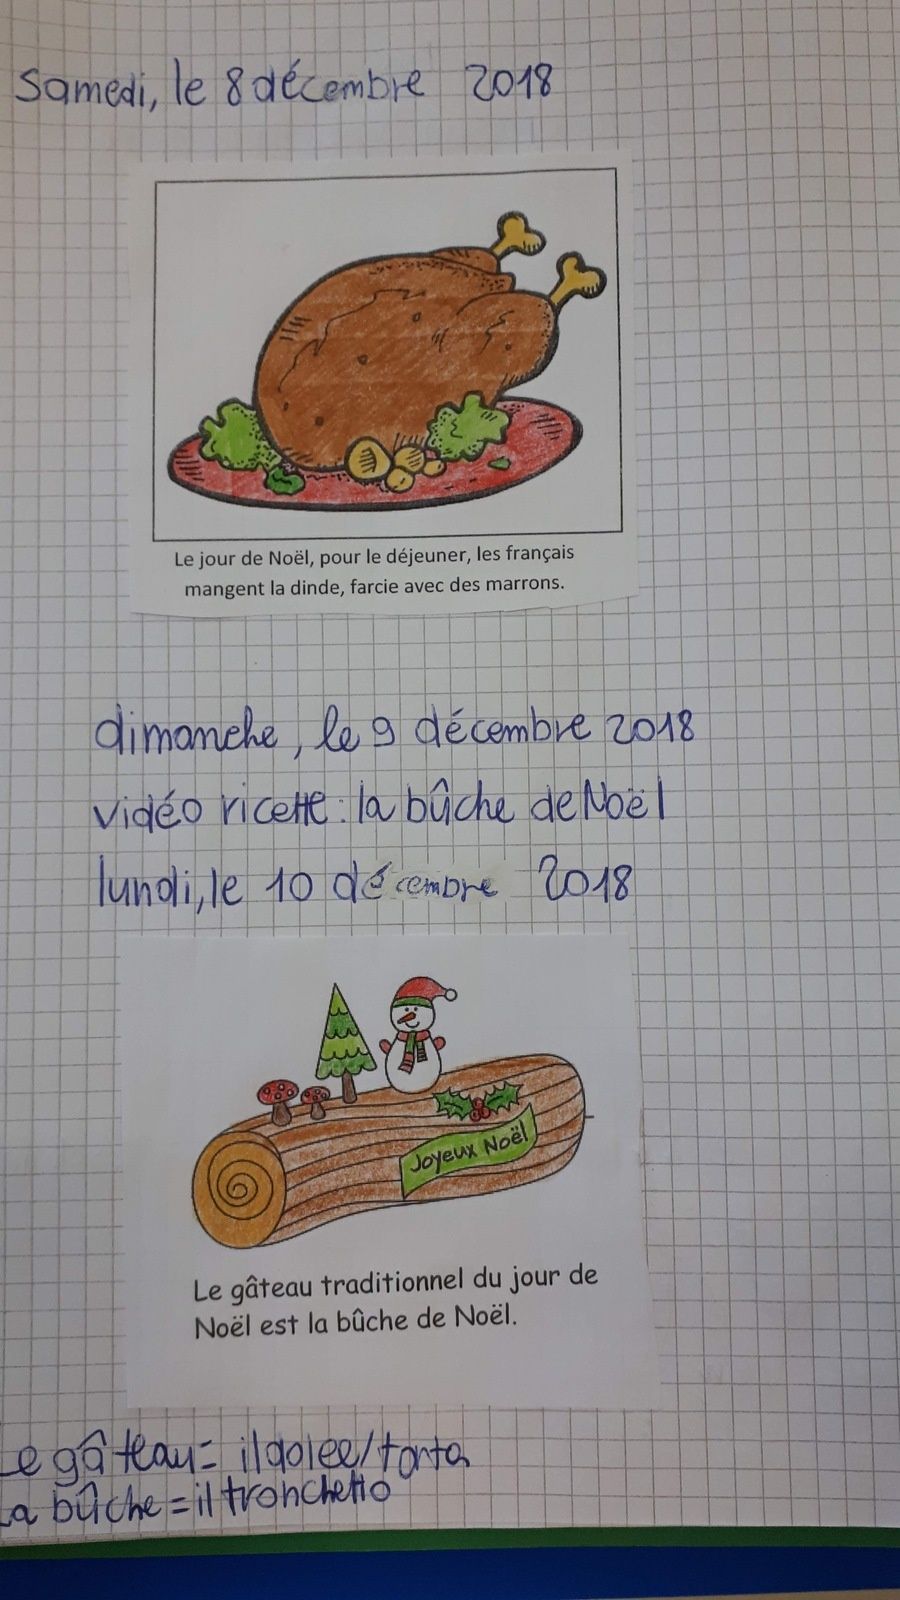 Samedi, le 8 décembre 2018
Le jour de Noël, pour le déjeuner, les français
mangent la dinde, farcie avec des marrons.
dimanche, le 9 décembre 2018
vidéo ricette: la bûche de Noël
lundi, le 10 décembre 2018
Joyeux Noël
Le gâteau traditionnel du jour de
Noël est la bûche de Noël.
Le gâteau = il dolce/torta
La bûche = il tronchetto